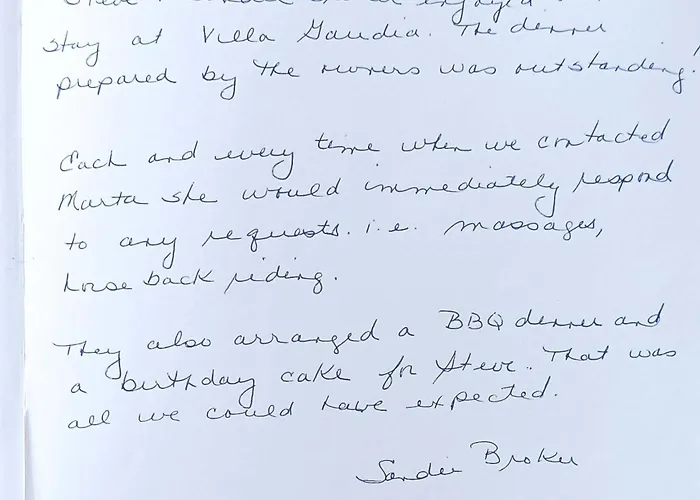 enjoyed
stay at Villa Gaudia. The dinner
prepared by the owners was outstanding!
Each and every time when we contacted
Marta she would immediately respond
to any requests. i.e. massages,
horse back riding.
They also arranged a BBQ dinner and
a birthday cake for Steve. That was
all we could have expected.
Sandie Broker